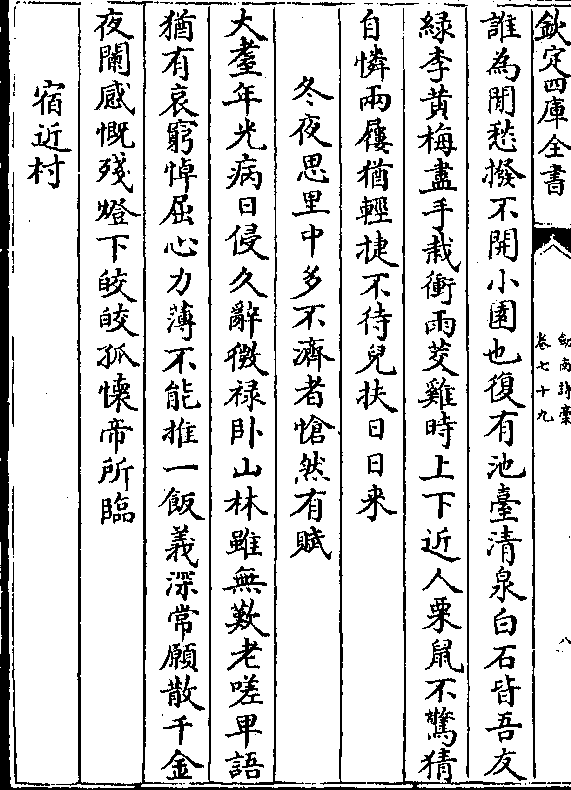 欽定四庫全書
劍南詩稾
卷七十九
八
誰為閒愁撥不開小園也復有池臺清泉白石皆吾友
緑李黄梅盡手栽衝雨芡雞時上下近人栗鼠不驚猜
自憐兩屨猶輕捷不待兒扶日日来
冬夜思里中多不濟者愴然有賦
大耋年光病日侵久辭㣲禄卧山林雖無歎老嗟卑語
猶有哀窮悼屈心力薄不能推一飯義深常願散千金
夜闌感慨殘燈下皎皎孤懐帝所臨
宿近村